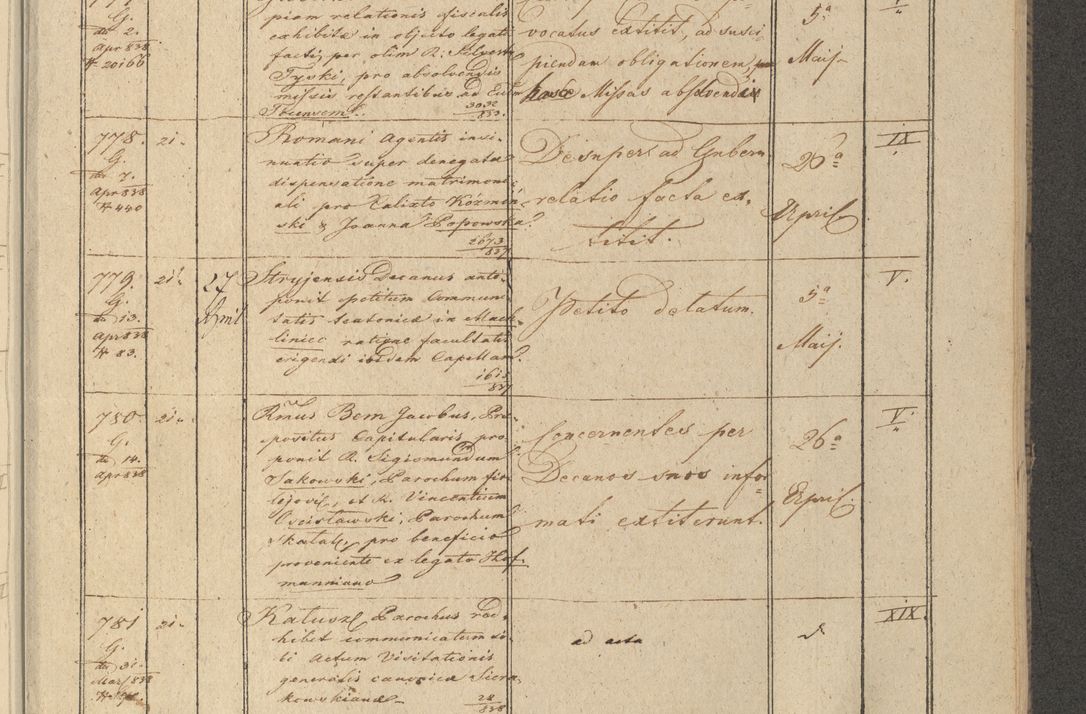 G.
du 2.
Apr 838
N 20160
piam relationis fiscalis
exhibitæ in objecto legati
facti, per olim R: Silvestr.
Tyski, pro absolvendis
missis restantibus ad Eccl.
3032
832.
vocatus extitit, ad susci
piendam obligationem,
hasce Missas absolvendi
5ª
Maij
778.
G.
du 7.
Apr 838
N 440
21.
Romani Agentis insi-
nuatio super denegata
dispensatione matrimoni
ali pro Calixto Koźmiń
ski & Joanna Popowska.
2673
837
Desuper ad Gubern
relatio facta ex,
titit.
26ª
April
IX.
779.
G.
du 13.
Apr 838
N 83.
21.
27
April
Stryjensis Decanus anto-
ponit petitum Commun-
tatis teutonicæ in Mach
liniec ratione facultatis
erigendi ibidem Capellam.
1615
837
Petito delatum.
5ª
Maij.
V.
780
G.
du 14.
Apr 838
21.
Rmus Bem Jacobus, Præ-
positus Capitularis pro,
ponit R. Sigismundum
Sakowski, Parochum
et R. Vincentium
Parochum
Skałat, pro beneficio
proveniente ex legato Hof,
manniano
Concernentes per
Decanos suos infor
mati extiterunt.
26ª
April.
V.
781
G.
du 31.
Mart 838
21.
Kałusz Parochus red,
hibet communicatum si-
bi Actum Visitationis
generalis canonicæ Siera
kowskianæ
28
838
ad acta
XIX.